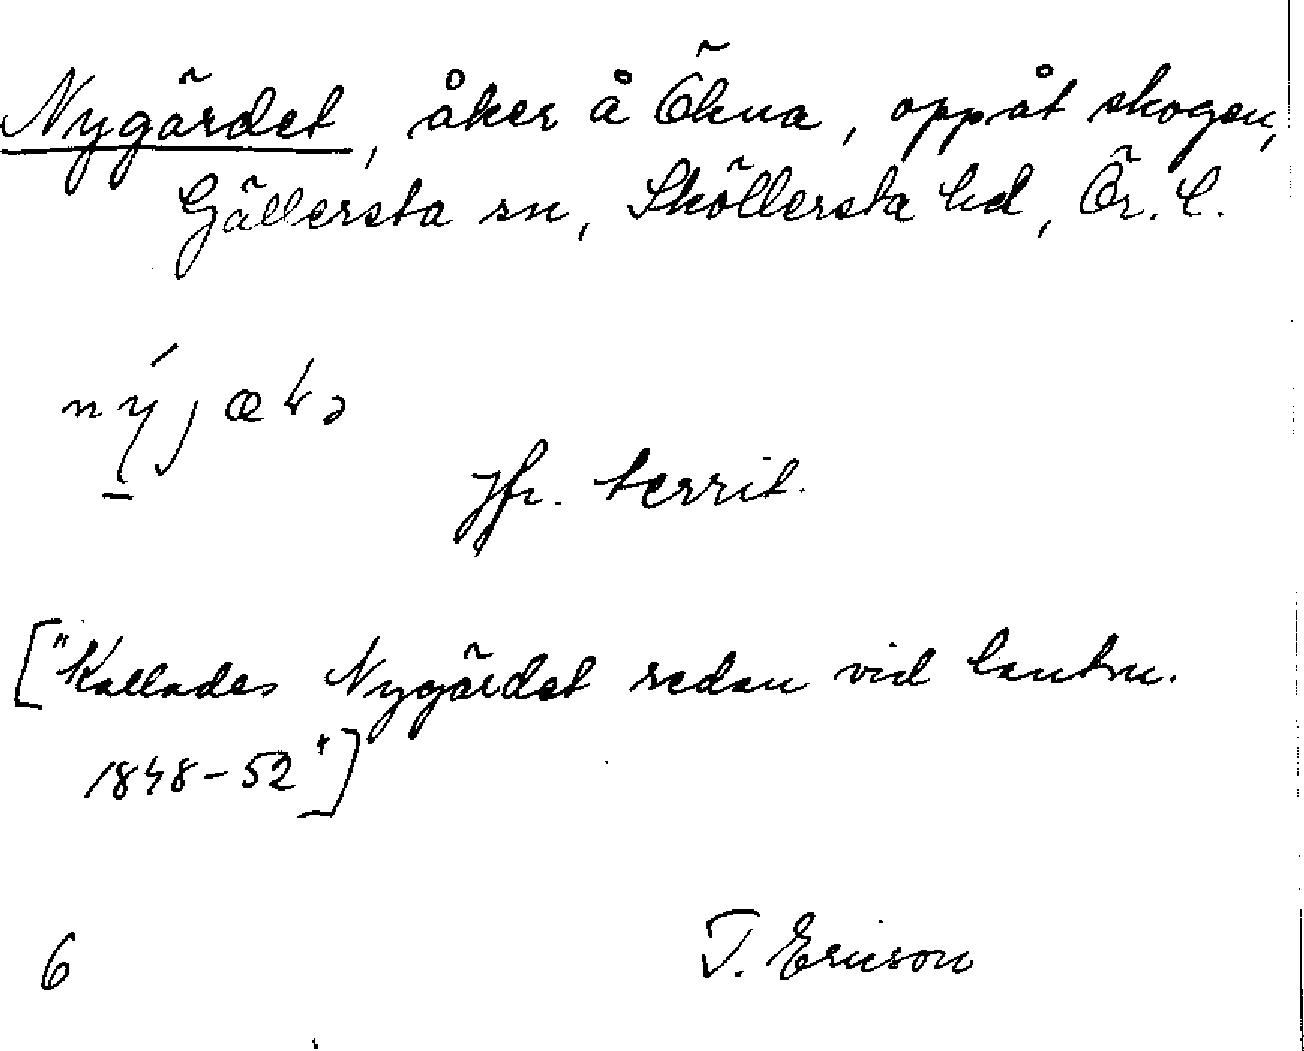 Nygärdet, åker å Ökna, oppåt skogen,
Gällersta sn, Sköllersta hd, Ör. l.
Jfr. territ.
["Kallades Nygärdet redan vid lantm.
1848-52"]
6
T. Ericson